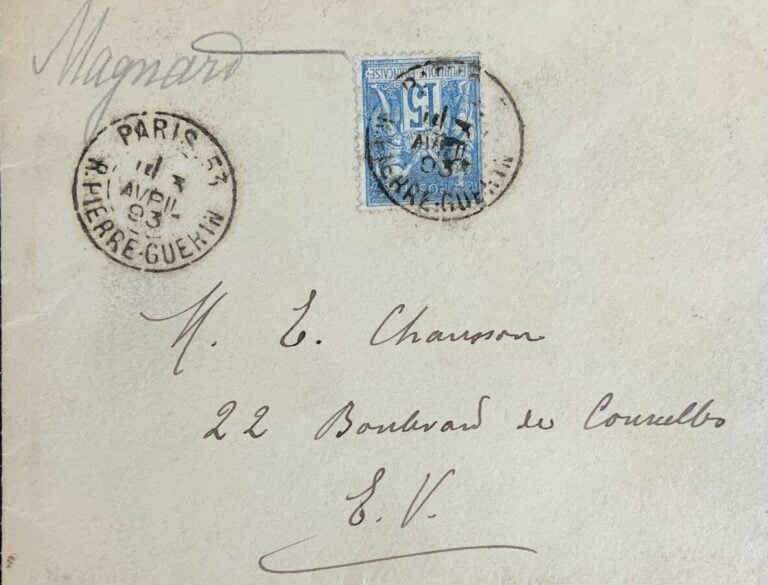 Magnard
PARIS.53
AVRIL
93
R.PIERRE-GUERIN
RÉPUBLIQUE FRANÇAISE
15
POSTES
AVRIL
93
PIERRE-GUERIN
M. E. Chausson
22 Boulevard de Courcelles
E. V.